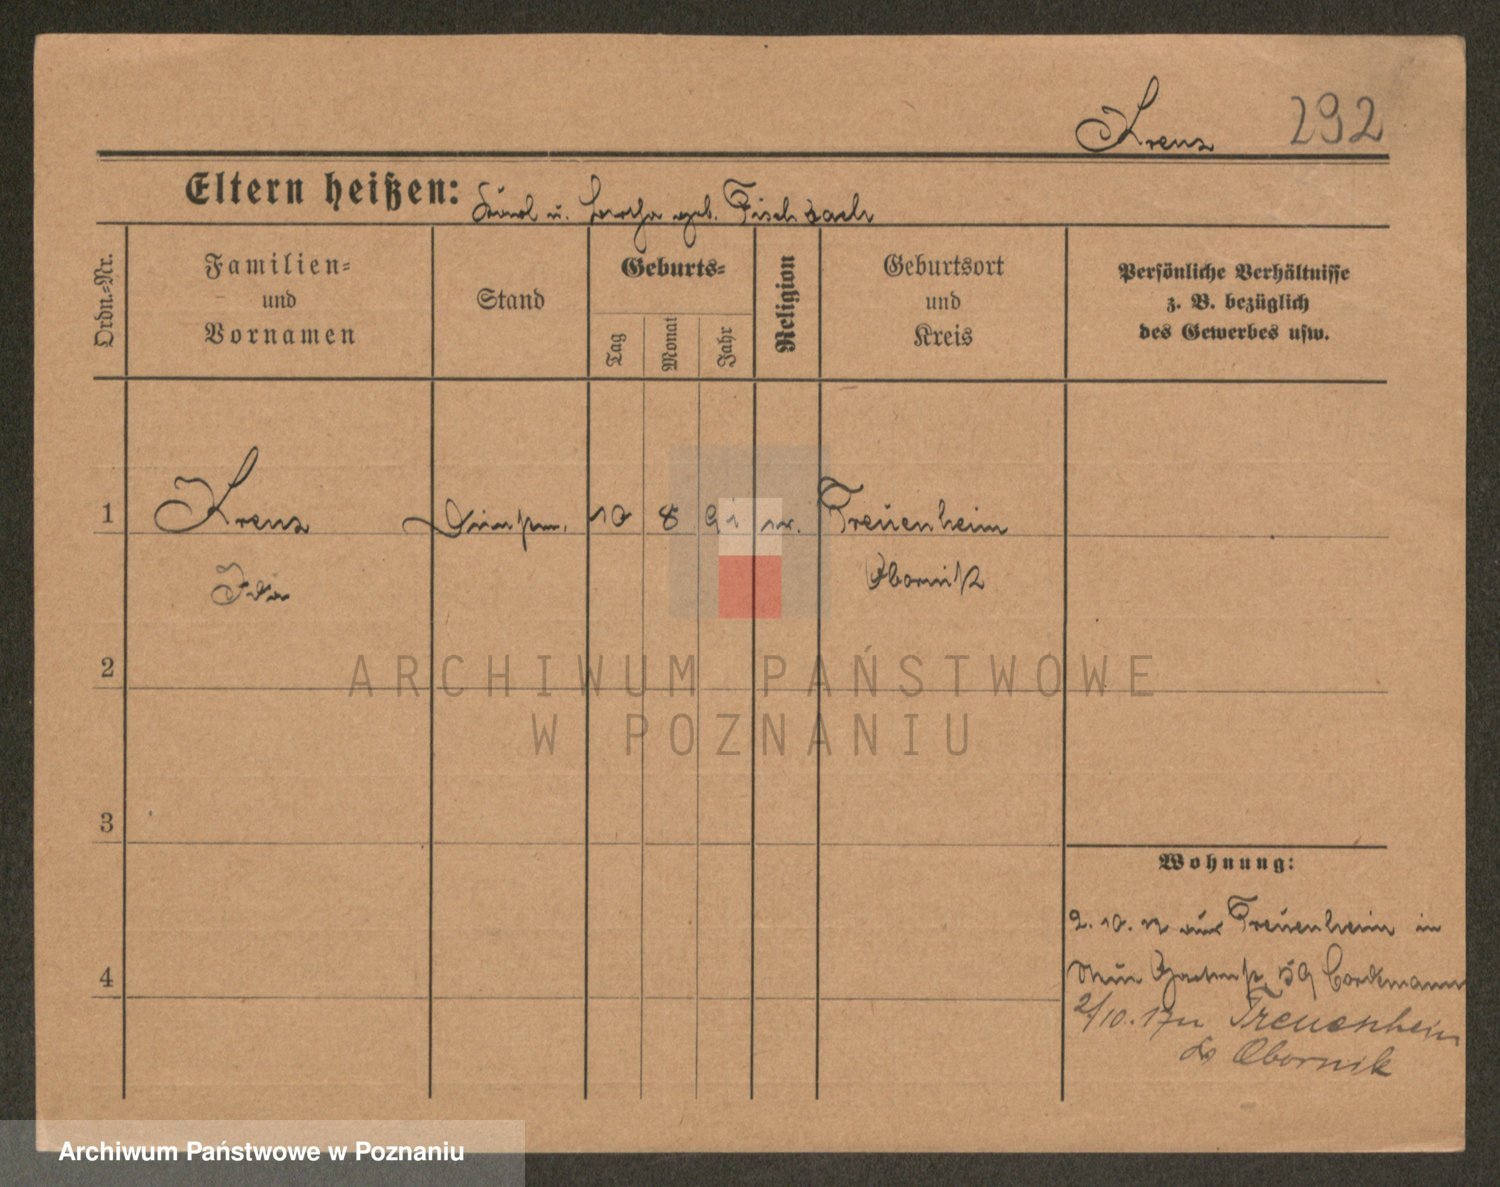 Krenz 292
Eltern heißen: Karl u. Bertha geb. Fischbach
Ordn.=Nr.
Familien=
und
Vornamen
Stand
Geburts=
Tag
Monat
Jahr
Religion
Geburtsort
und
Kreis
Persönliche Verhältnisse
z. B. bezüglich
des Gewerbes usw.
1 Krenz 10 8 91 ev. Treuenheim
Ida Obornik
2
ARCHIWUM PAŃSTWOWE
W POZNANIU
3
Wohnung:
2. 10. aus Treuenheim in
59
4
2/10. 17 n Treuenheim
Obornik
Archiwum Państwowe w Poznaniu